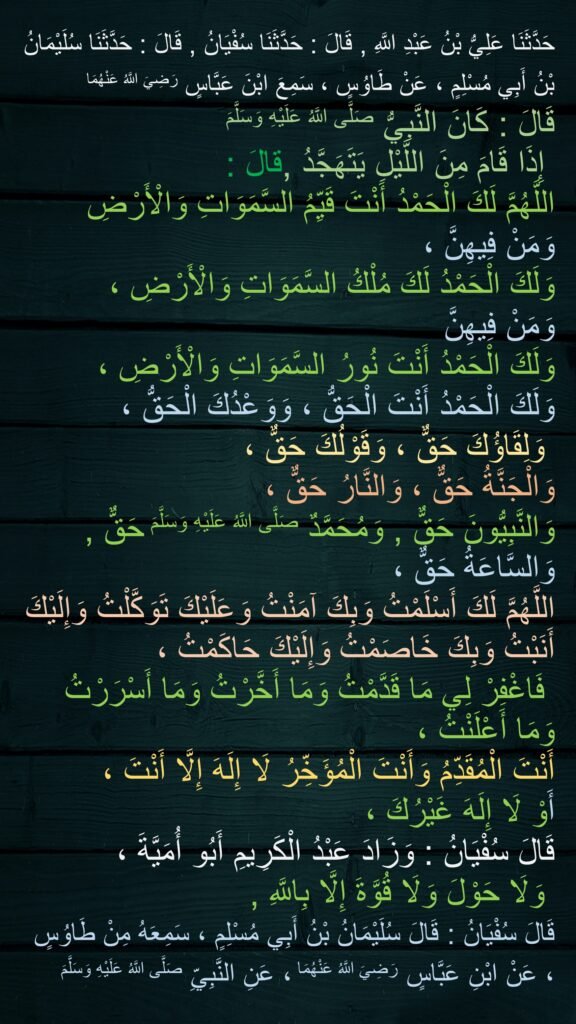 حَدَّثَنَا عَلِيُّ بْنُ عَبْدِ اللَّهِ , قَالَ : حَدَّثَنَا سُفْيَانُ , قَالَ : حَدَّثَنَا سُلَيْمَانُ
بْنُ أَبِي مُسْلِمٍ ، عَنْ طَاوُسٍ ، سَمِعَ ابْنَ عَبَّاسٍ رَضِيَ اللَّهُ عَنْهُمَا
قَالَ : كَانَ النَّبِيُّ صَلَّى اللَّهُ عَلَيْهِ وَسَلَّمَ
إِذَا قَامَ مِنَ اللَّيْلِ يَتَهَجَّدُ ,قَالَ :
اللَّهُمَّ لَكَ الْحَمْدُ أَنْتَ قَيِّمُ السَّمَوَاتِ وَالْأَرْضِ
وَمَنْ فِيهِنَّ ،
وَلَكَ الْحَمْدُ لَكَ مُلْكُ السَّمَوَاتِ وَالْأَرْضِ ،
وَمَنْ فِيهِنَّ
وَلَكَ الْحَمْدُ أَنْتَ نُورُ السَّمَوَاتِ وَالْأَرْضِ ،
وَلَكَ الْحَمْدُ أَنْتَ الْحَقُّ ، وَوَعْدُكَ الْحَقُّ ،
وَلِقَاؤُكَ حَقٌّ ، وَقَوْلُكَ حَقٌّ ،
وَالْجَنَّةُ حَقٌّ ، وَالنَّارُ حَقٌّ ،
وَالنَّبِيُّونَ حَقٌّ , وَمُحَمَّدٌ صَلَّى اللَّهُ عَلَيْهِ وَسَلَّمَ حَقٌّ ,
وَالسَّاعَةُ حَقٌّ ،
اللَّهُمَّ لَكَ أَسْلَمْتُ وَبِكَ آمَنْتُ وَعَلَيْكَ تَوَكَّلْتُ وَإِلَيْكَ
أَنَبْتُ وَبِكَ خَاصَمْتُ وَإِلَيْكَ حَاكَمْتُ ،
فَاغْفِرْ لِي مَا قَدَّمْتُ وَمَا أَخَّرْتُ وَمَا أَسْرَرْتُ
وَمَا أَعْلَنْتُ ،
أَنْتَ الْمُقَدِّمُ وَأَنْتَ الْمُؤَخِّرُ لَا إِلَهَ إِلَّا أَنْتَ ،
أَوْ لَا إِلَهَ غَيْرُكَ ،
قَالَ سُفْيَانُ : وَزَادَ عَبْدُ الْكَرِيمِ أَبُو أُمَيَّةَ ،
وَلَا حَوْلَ وَلَا قُوَّةَ إِلَّا بِاللَّهِ ,
قَالَ سُفْيَانُ : قَالَ سُلَيْمَانُ بْنُ أَبِي مُسْلِمٍ ، سَمِعَهُ مِنْ طَاوُسٍ
، عَنْ ابْنِ عَبَّاسٍ رَضِيَ اللَّهُ عَنْهُمَا ، عَنِ النَّبِيِّ صَلَّى اللَّهُ عَلَيْهِ وَسَلَّمَ